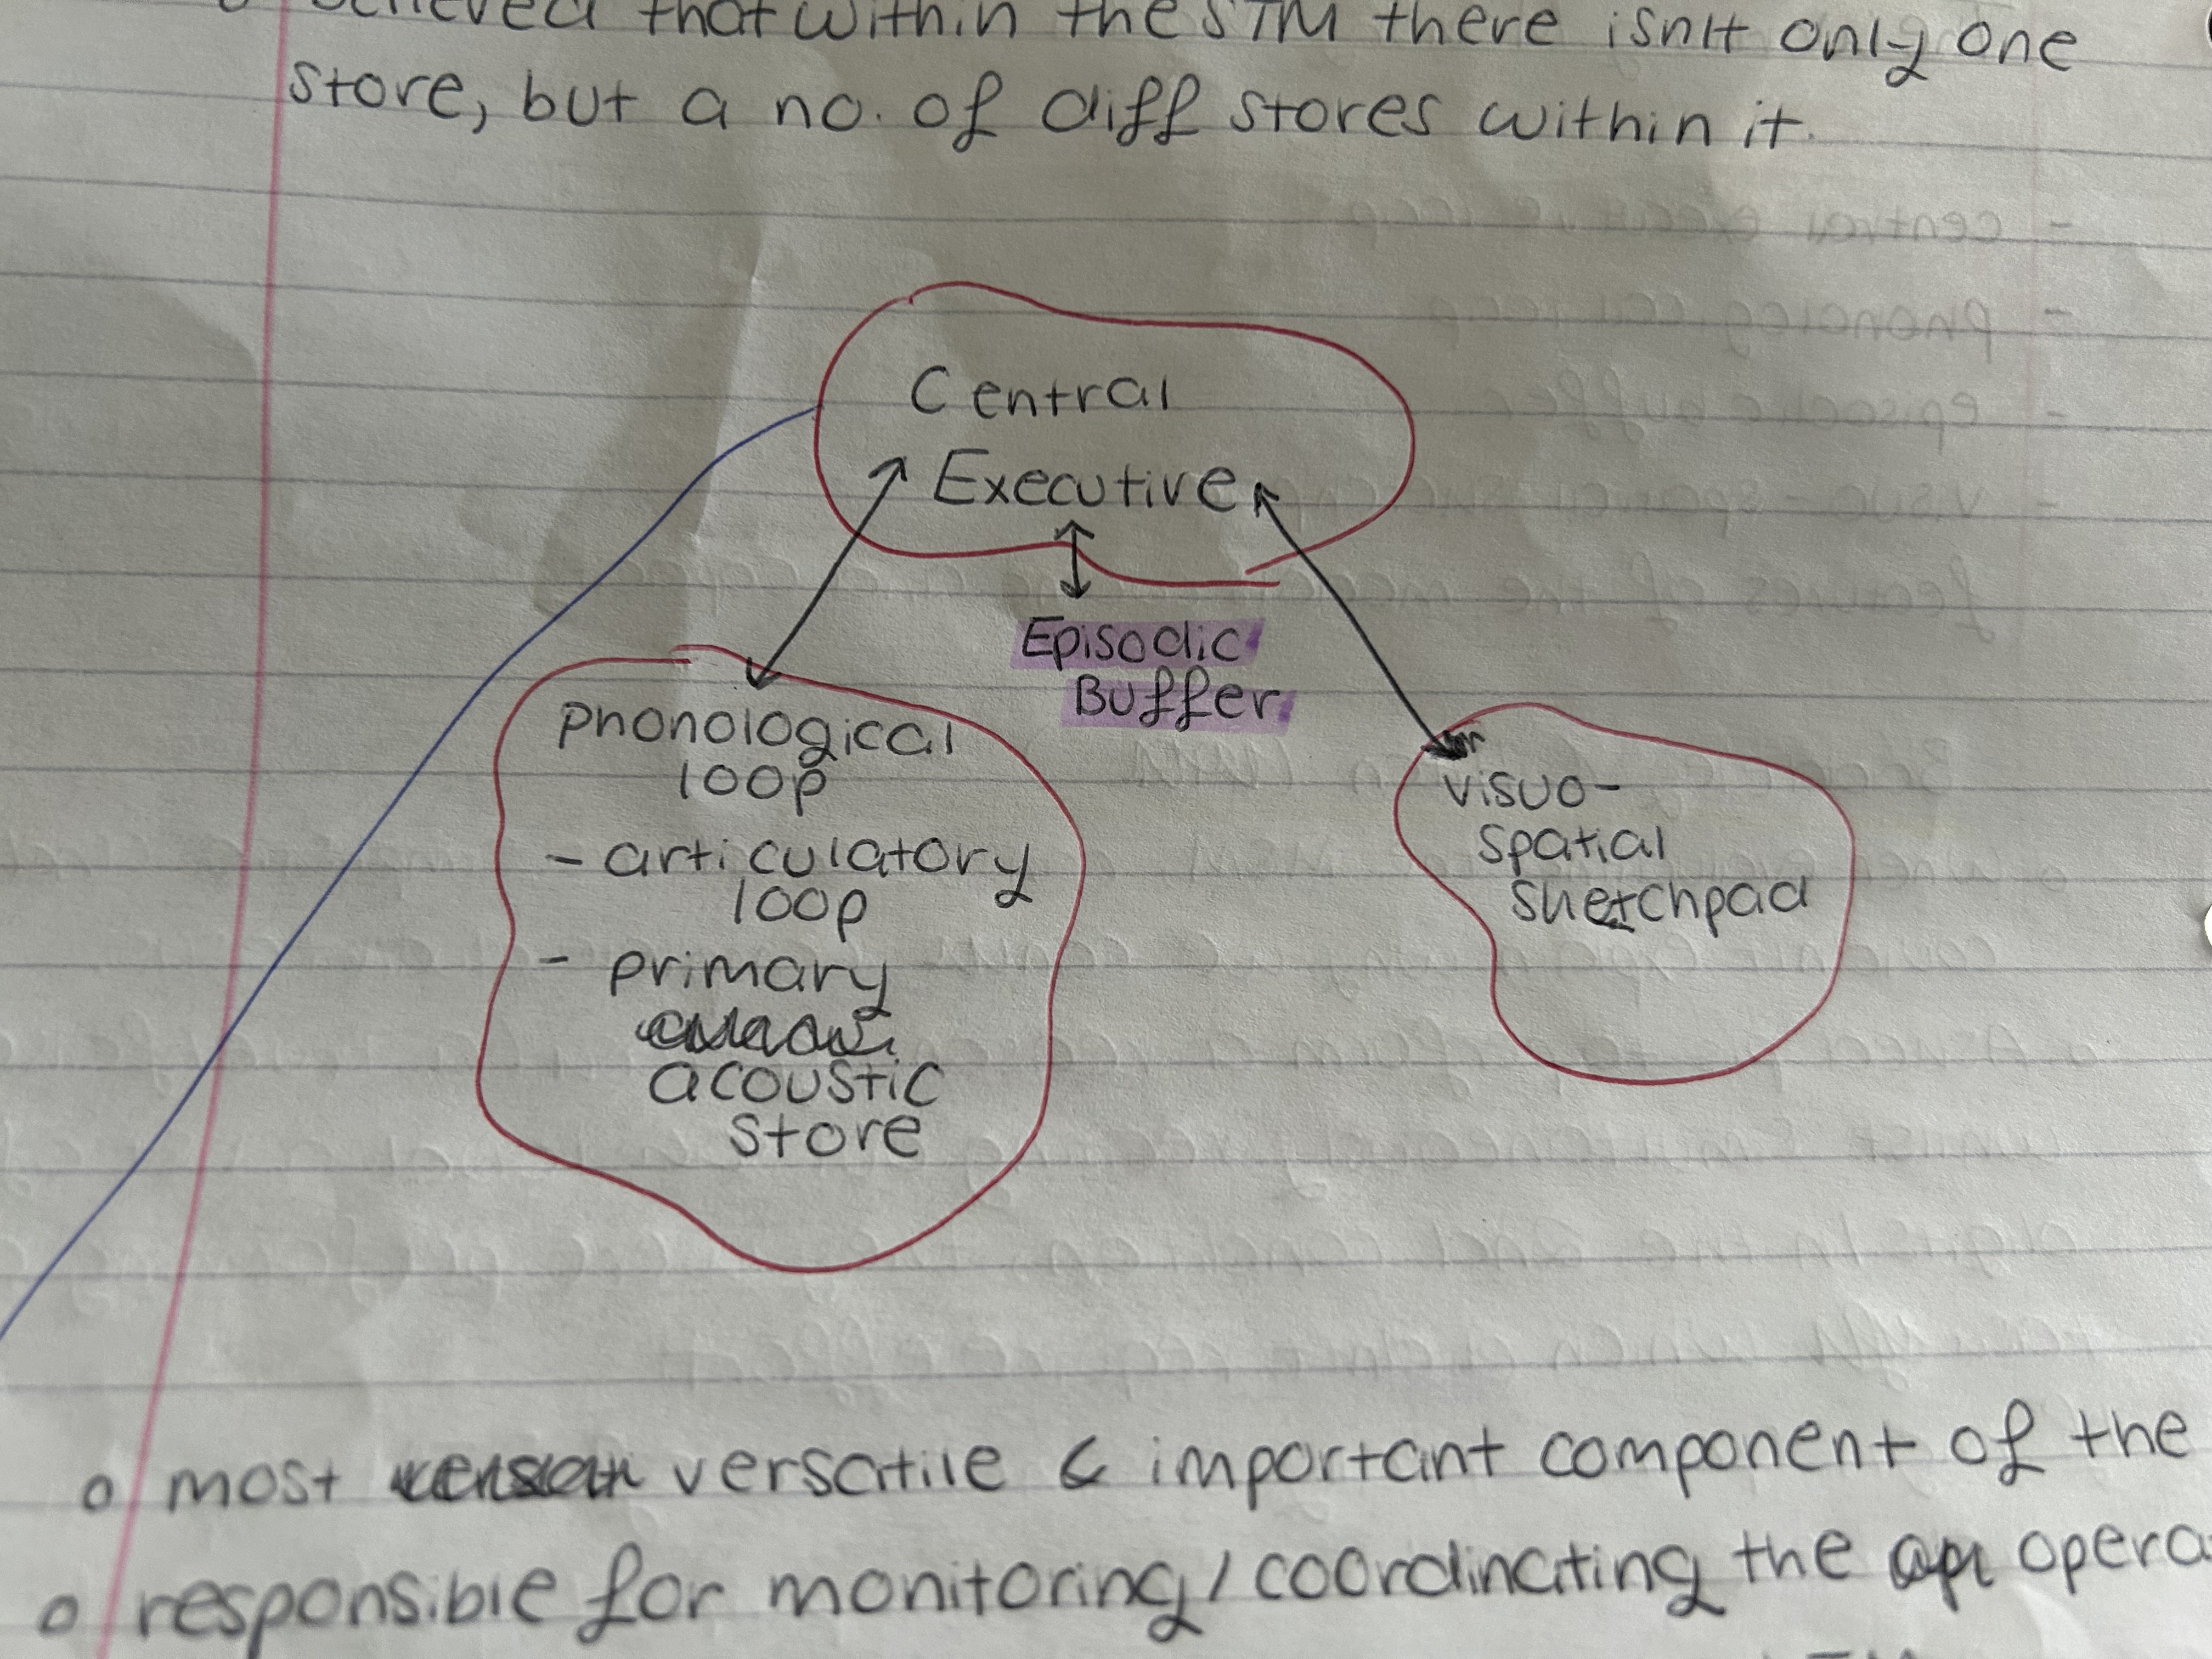 believed that within the STM there isn't only one
store, but a no. of diff stores within it.
Central
Executive
Episodic
Buffer
Phonological
loop
- articulatory
loop
- primary
acoustic
store
visuo-
spatial
sketchpad
o most versatile & important component of the
o responsible for monitoring/coordinating the opera